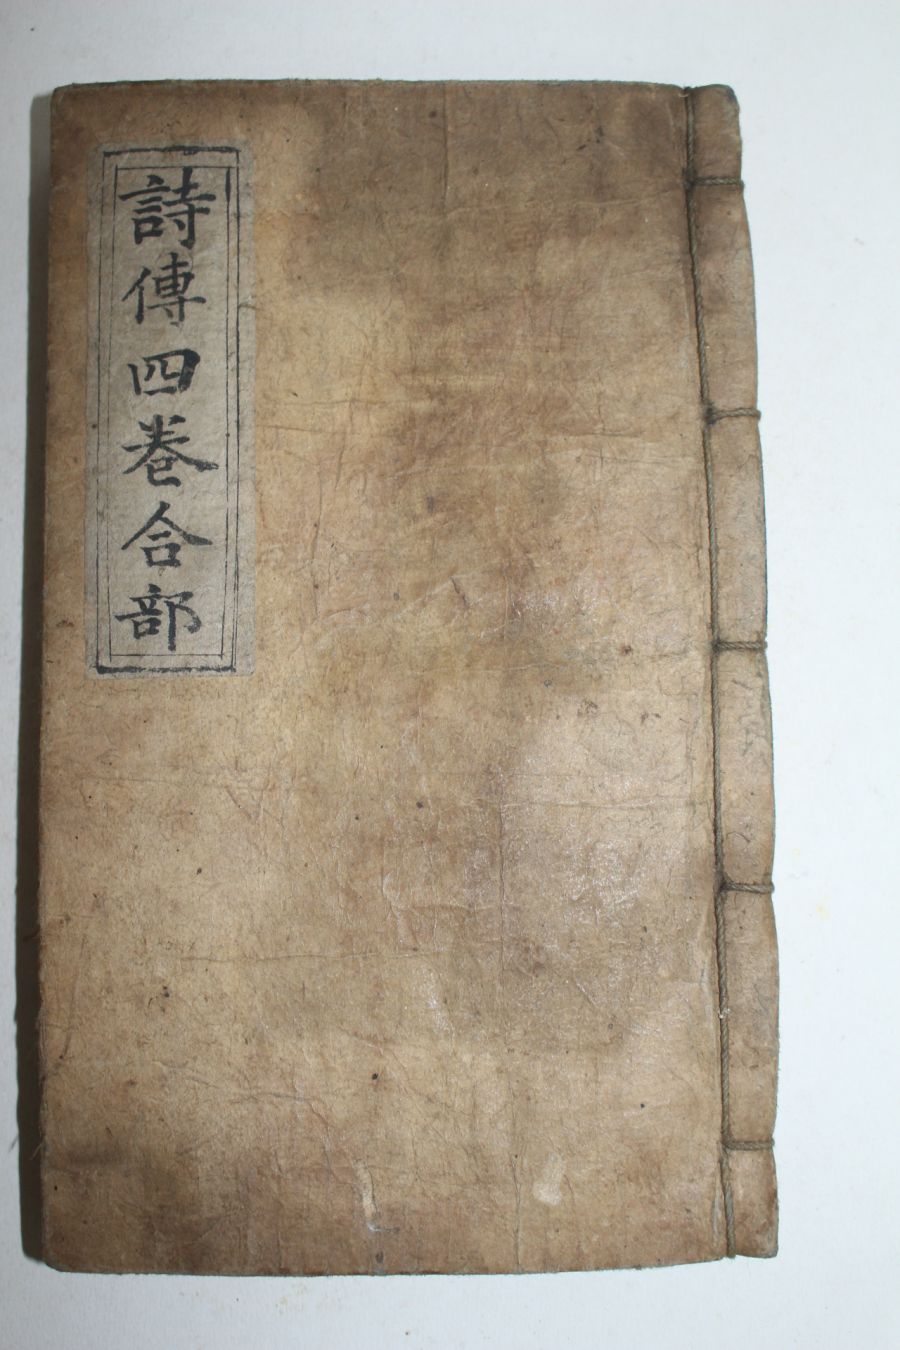 詩傳四巻合部